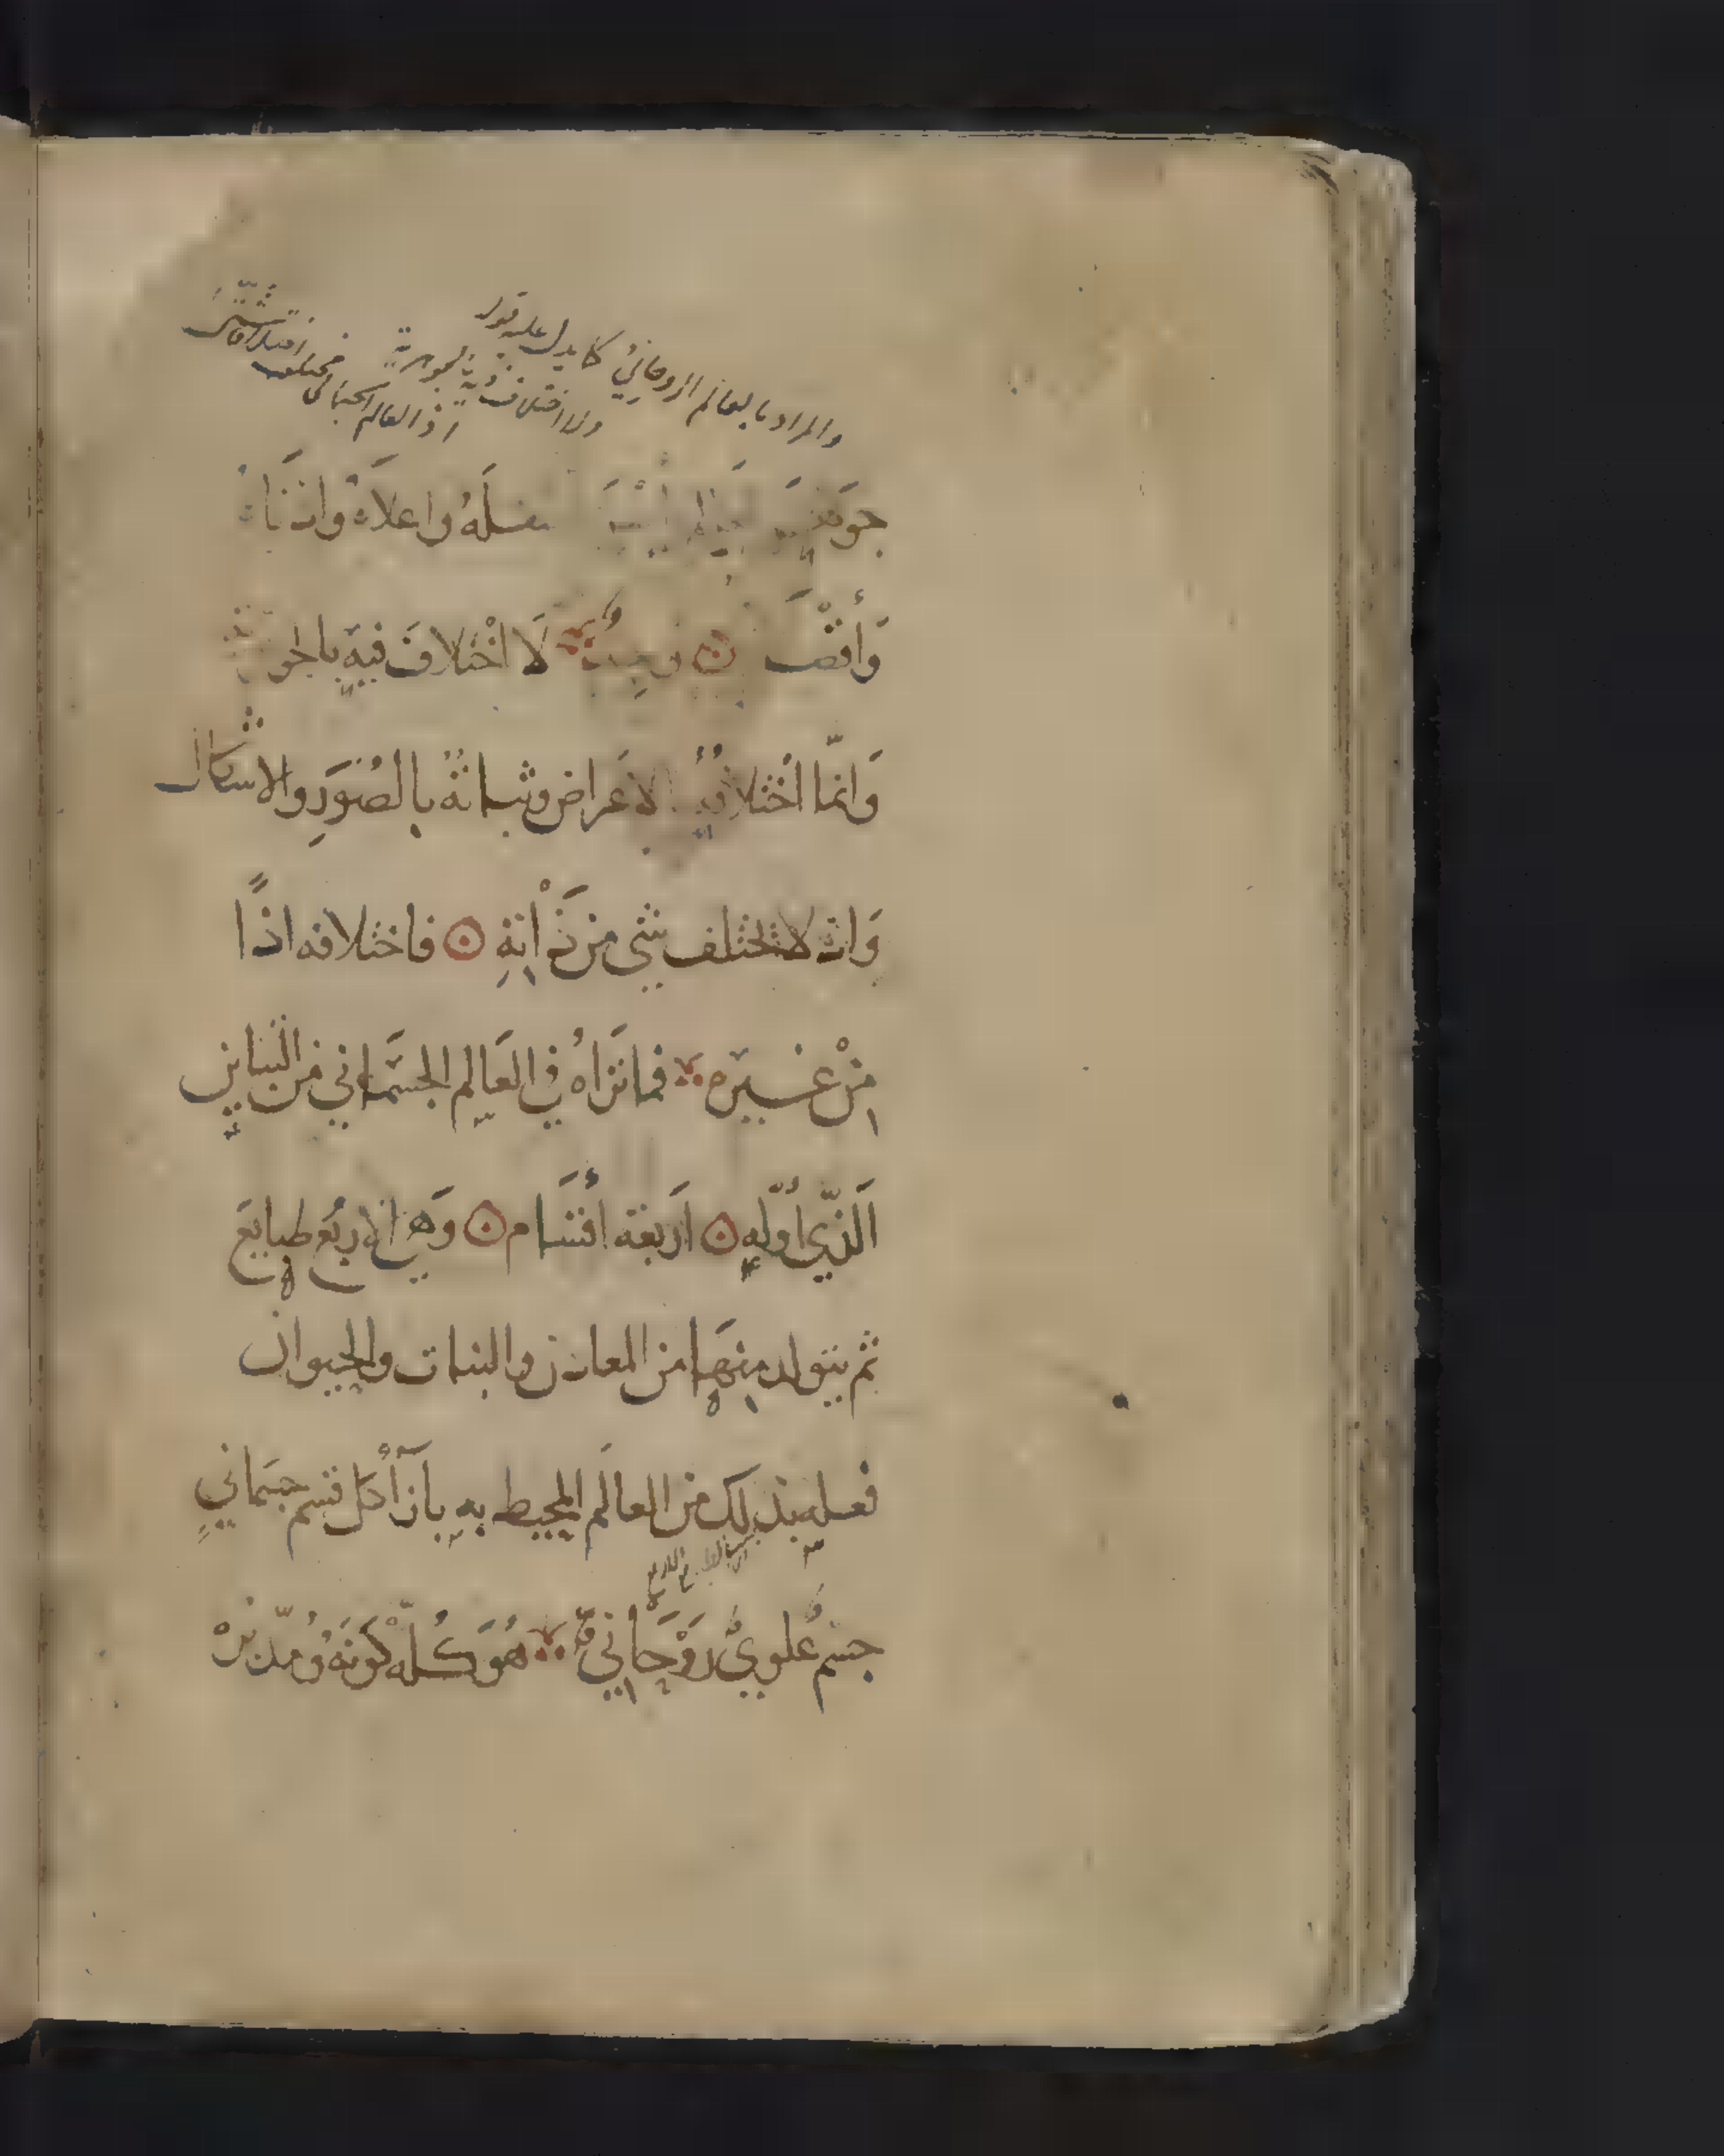 والمراد بالعالم الروحاني كما يدل عليه قوله
ولا اختلاف فيه بالجوهرية
اذ العالم الجسماني مختلف اختلافا شتى
سفله واعلاه وادناه
لَا اخْتلافَ فيهِ
وَانّما اخْتلافُهُ بالاعَراض وثباتهُ بِالصُوَرِ والاشكال
وَانه لا يختلف شي من ذَاتِهِ ۞ فاختلافه اذًا
مِنْ غيره فما تَرَاهُ في العَالمِ الجسْمَاني من التباينِ
اَلذّي أوّله ۞ اَربعة أقسَام ۞ وَهي الاربُع طبايَع
ثم يتولد مِنهَا من المعادن والنبات والحيوان
فعلمِ بذلكَ من العالَم المحيط بهِ بأن لكل قسم جسَماني
جسْم عُلويٌ رَوْحَاني هُوَ كُلّهْ كوّنَهُ وُمدّبرهْ